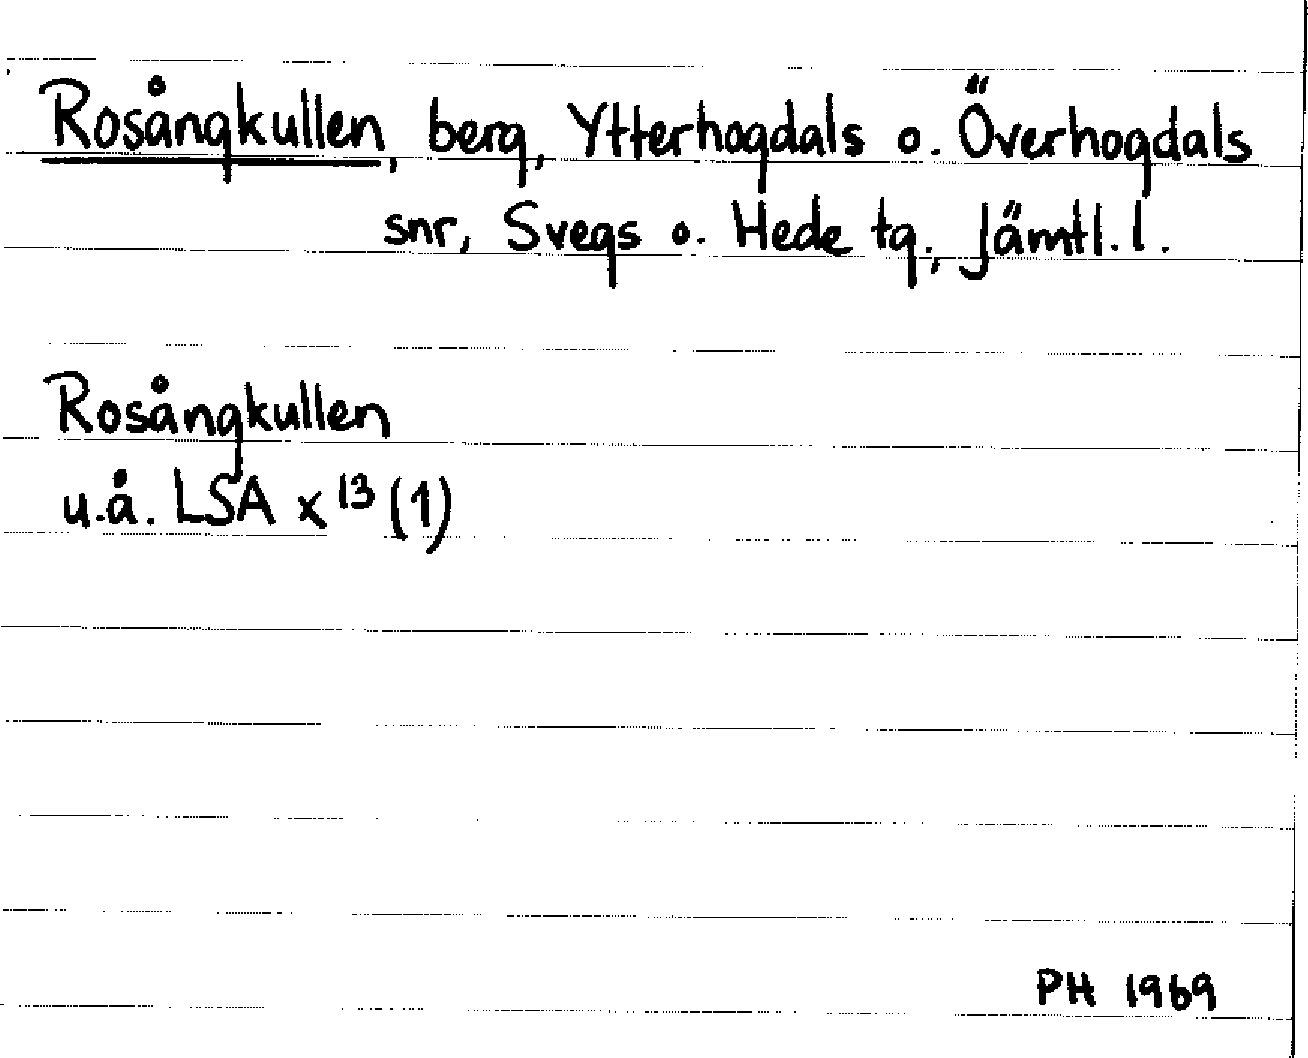 Rosångkullen, berg, Ytterhogdals o. Överhogdals
snr, Svegs o. Hede tg., Jämtl. l.
Rosångkullen
u.å. LSA x 13 (1)
PH 1969